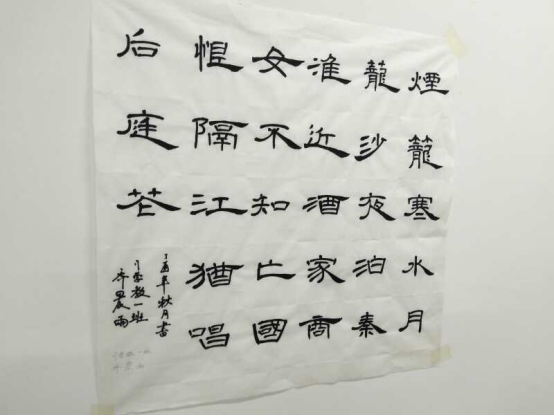 煙籠寒水月
籠沙夜泊秦
淮近酒家商
女不知亡國
恨隔江猶唱
后庭花
丁酉年秋月書
教一班
齐晨雨